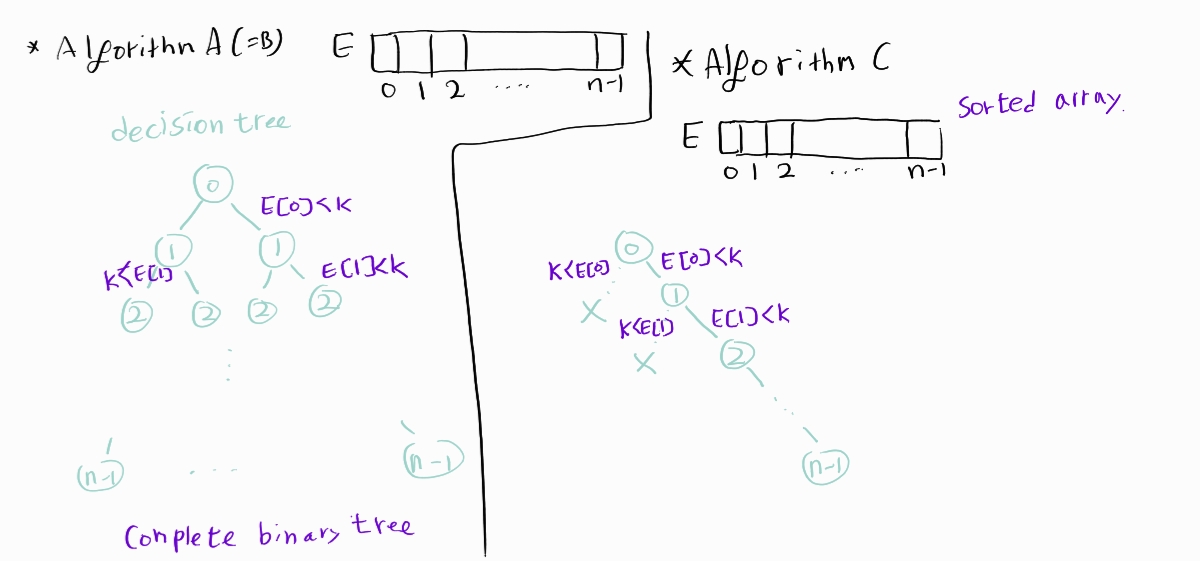 * Algorithn A (=B)
E
0 1 2 ····· n-1
decision tree
0
E[0]<K
1 1
K<E[1]
E[1]<K
2 2 2 2
n-1 ··· n-1
Conplete binary tree
* Algorithm C
Sorted array.
E
0 1 2 ···· n-1
0
K<E[0] E[0]<K
X 1
K<E[1] E[1]<K
X 2
n-1